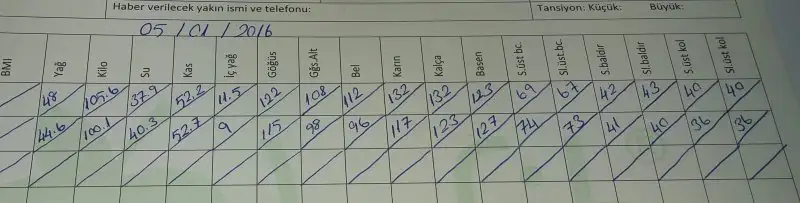 Haber verilecek yakın ismi ve telefonu: Tansiyon: Küçük: Büyük:
05 / 01 / 2016
BMI Yağ Kilo Su Kas İç.yağ Göğüs Gğs.Alt Bel Karın Kalça Basen S.üst bc. Sl.üst.bc. S.baldır Sl.baldır S.üst kol Sl.üst kol
48 105.6 37.9 52.2 11.5 122 108 112 132 132 123 69 67 42 43 40 40
44.6 100.1 40.3 52.7 9 115 98 96 117 123 127 74 73 41 40 36 36